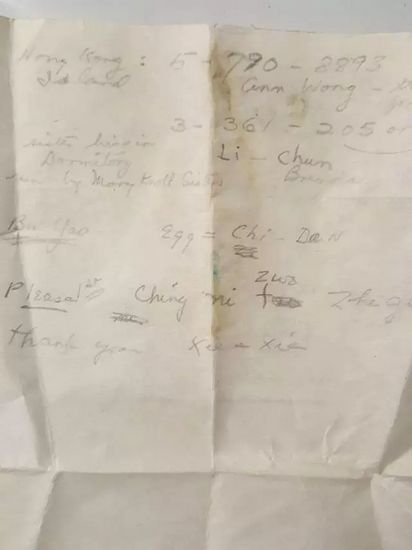 Hong Kong : 5-790-8893
Island Ann Wong -
3-361-205 or
sister living in
Dormitory Li - Chun
run by Mary Knoll Sisters Brenda
Bu Yao Egg = Chi - Dan
Please Ching ni zuo Zhe g
thank you Xie - Xie